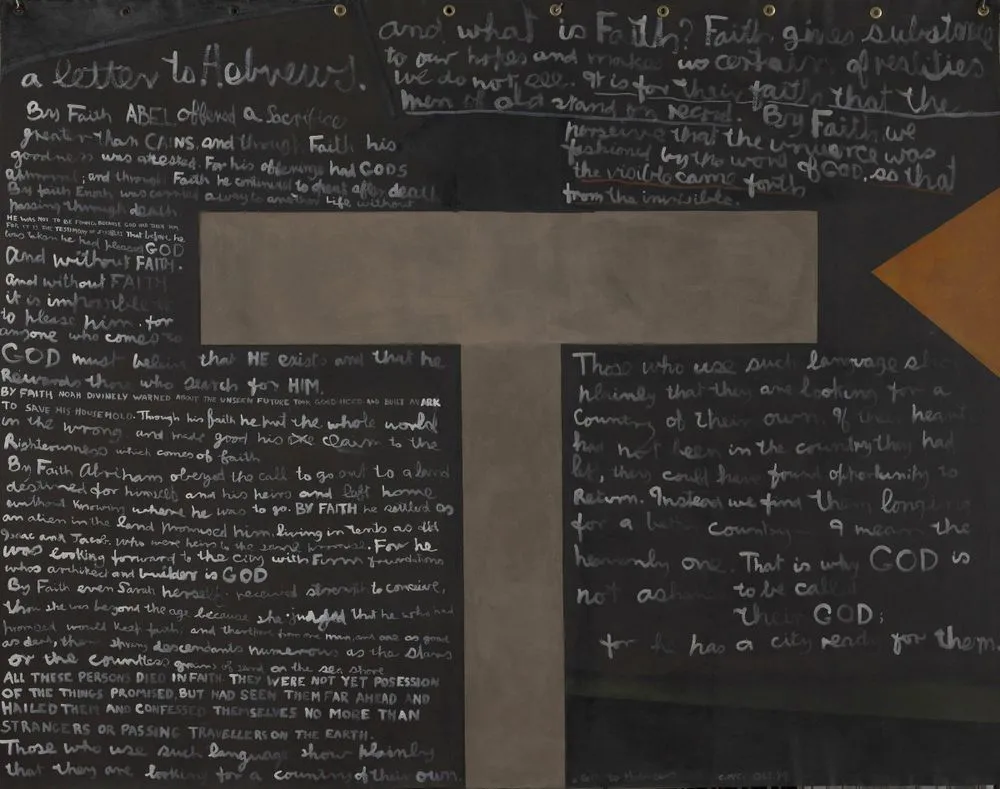 a letter to Hebrews.
and what is Faith? Faith gives substance
to our hopes and makes us certain of realities
we do not see. It is for their faith that the
men of old stand on record. By Faith we
perceive that the universe was
fashioned by the word of GOD. so that
the visible came forth
from the invisible.
By Faith ABEL offered a Sacrifice
greater than CAINS, and through Faith his
goodness was attested. For his offerings had GODS
approval; and through Faith he continued to speak after death
By faith Enoch was carried away to another Life without
passing through death
HE WAS NOT TO BE FOUND, BECAUSE GOD HAD TAKEN HIM
FOR IT IS THE TESTIMONY OF SCRIPTURE that before he
was taken he had pleased GOD
And without FAITH.
And without FAITH
it is impossible to
to please him. for
anyone who comes to
GOD must believe that HE exists and that he
Rewards those who search for HIM.
BY FAITH NOAH DIVINELY WARNED ABOUT THE UNSEEN FUTURE TOOK GOOD HEED AND BUILT AN ARK
TO SAVE HIS HOUSEHOLD. Through his faith he put the whole world
in the wrong and made good his claim to the
Righteousness which comes of faith
By Faith Abriham obeyed the call to go out to a land
destined for himself and his heirs and left home
without knowing where he was to go. BY FAITH he settled as
an alien in the land promised him. living in tents as did
Isaac and Jacob. who were heirs to the same promise. For he
was looking forward to the City with Firm foundations
whos architect and builder is GOD
By Faith even Sarah herself received strength to conceive,
thou she was beyond the age because she judged that he who had
promised would keep faith; and therefore from one man, and one as good
as dead, there sprang descendants numerous as the stars
or the countless grains of sand on the sea shore
ALL THESE PERSONS DIED IN FAITH. THEY WERE NOT YET POSESSION
OF THE THINGS PROMISED, BUT HAD SEEN THEM FAR AHEAD AND
HAILED THEM AND CONFESSED THEMSELVES NO MORE THAN
STRANGERS OR PASSING TRAVELLERS ON THE EARTH.
Those who use such language show plainly
that they are looking for a country of their own.
Those who use such language show
plainly that they are looking for a
Country of their own. If their hearts
had not been in the country they had
left, they could have found opportunity to
Return. Instead we find them longing
for a better country - I mean the
heavenly one. That is why GOD is
not ashamed to be called
their GOD;
for he has a city ready for them.